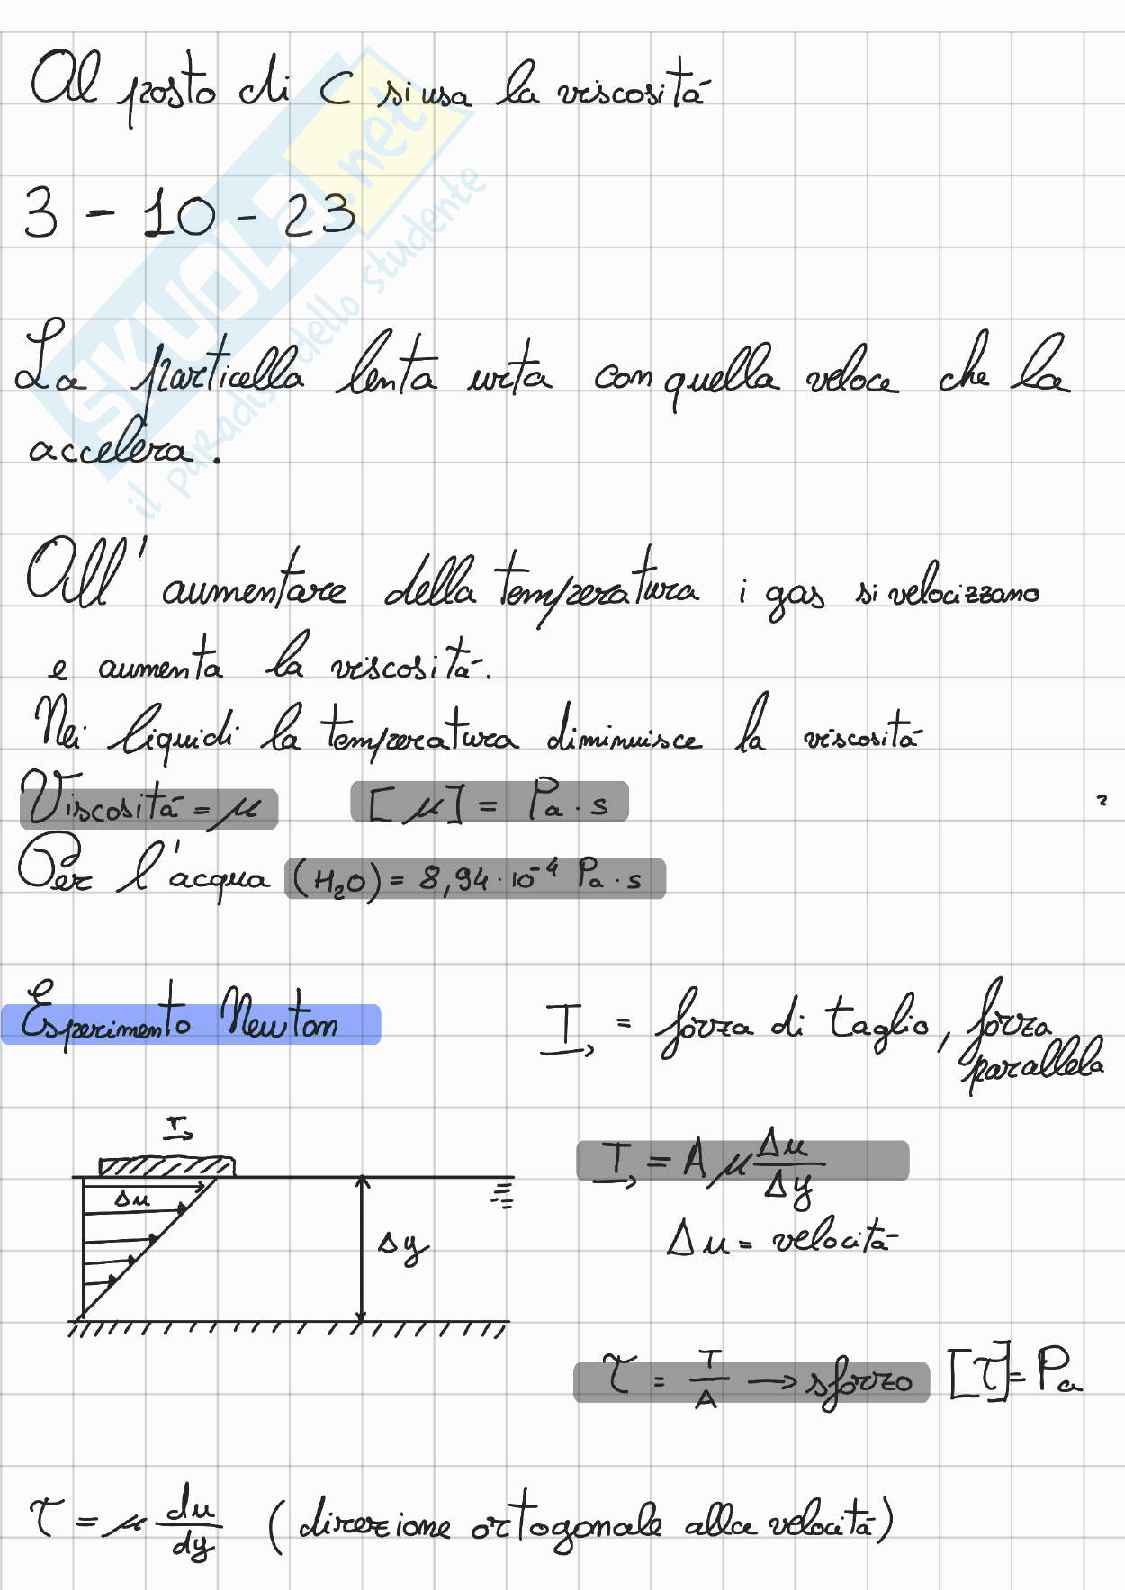 Al posto di C si usa la viscosità
3 - 10 - 23
La particella lenta urta con quella veloce che la
accelera.
All' aumentare della temperatura i gas si velocizzano
e aumenta la viscosità.
Nei liquidi la temperatura diminuisce la viscosità
Viscosità = μ [μ] = Pa · s
Per l'acqua (H₂O) = 8,94 · 10⁻⁴ Pa · s
Esperimento Newton
T = forza di taglio, forza
parallela
T
Δu
Δy
T = A μ Δu/Δy
Δu = velocità
τ = T/A → sforzo [τ] = Pa
τ = μ du/dy (direzione ortogonale alla velocità)
SKUOLA.net
il paradiso dello studente